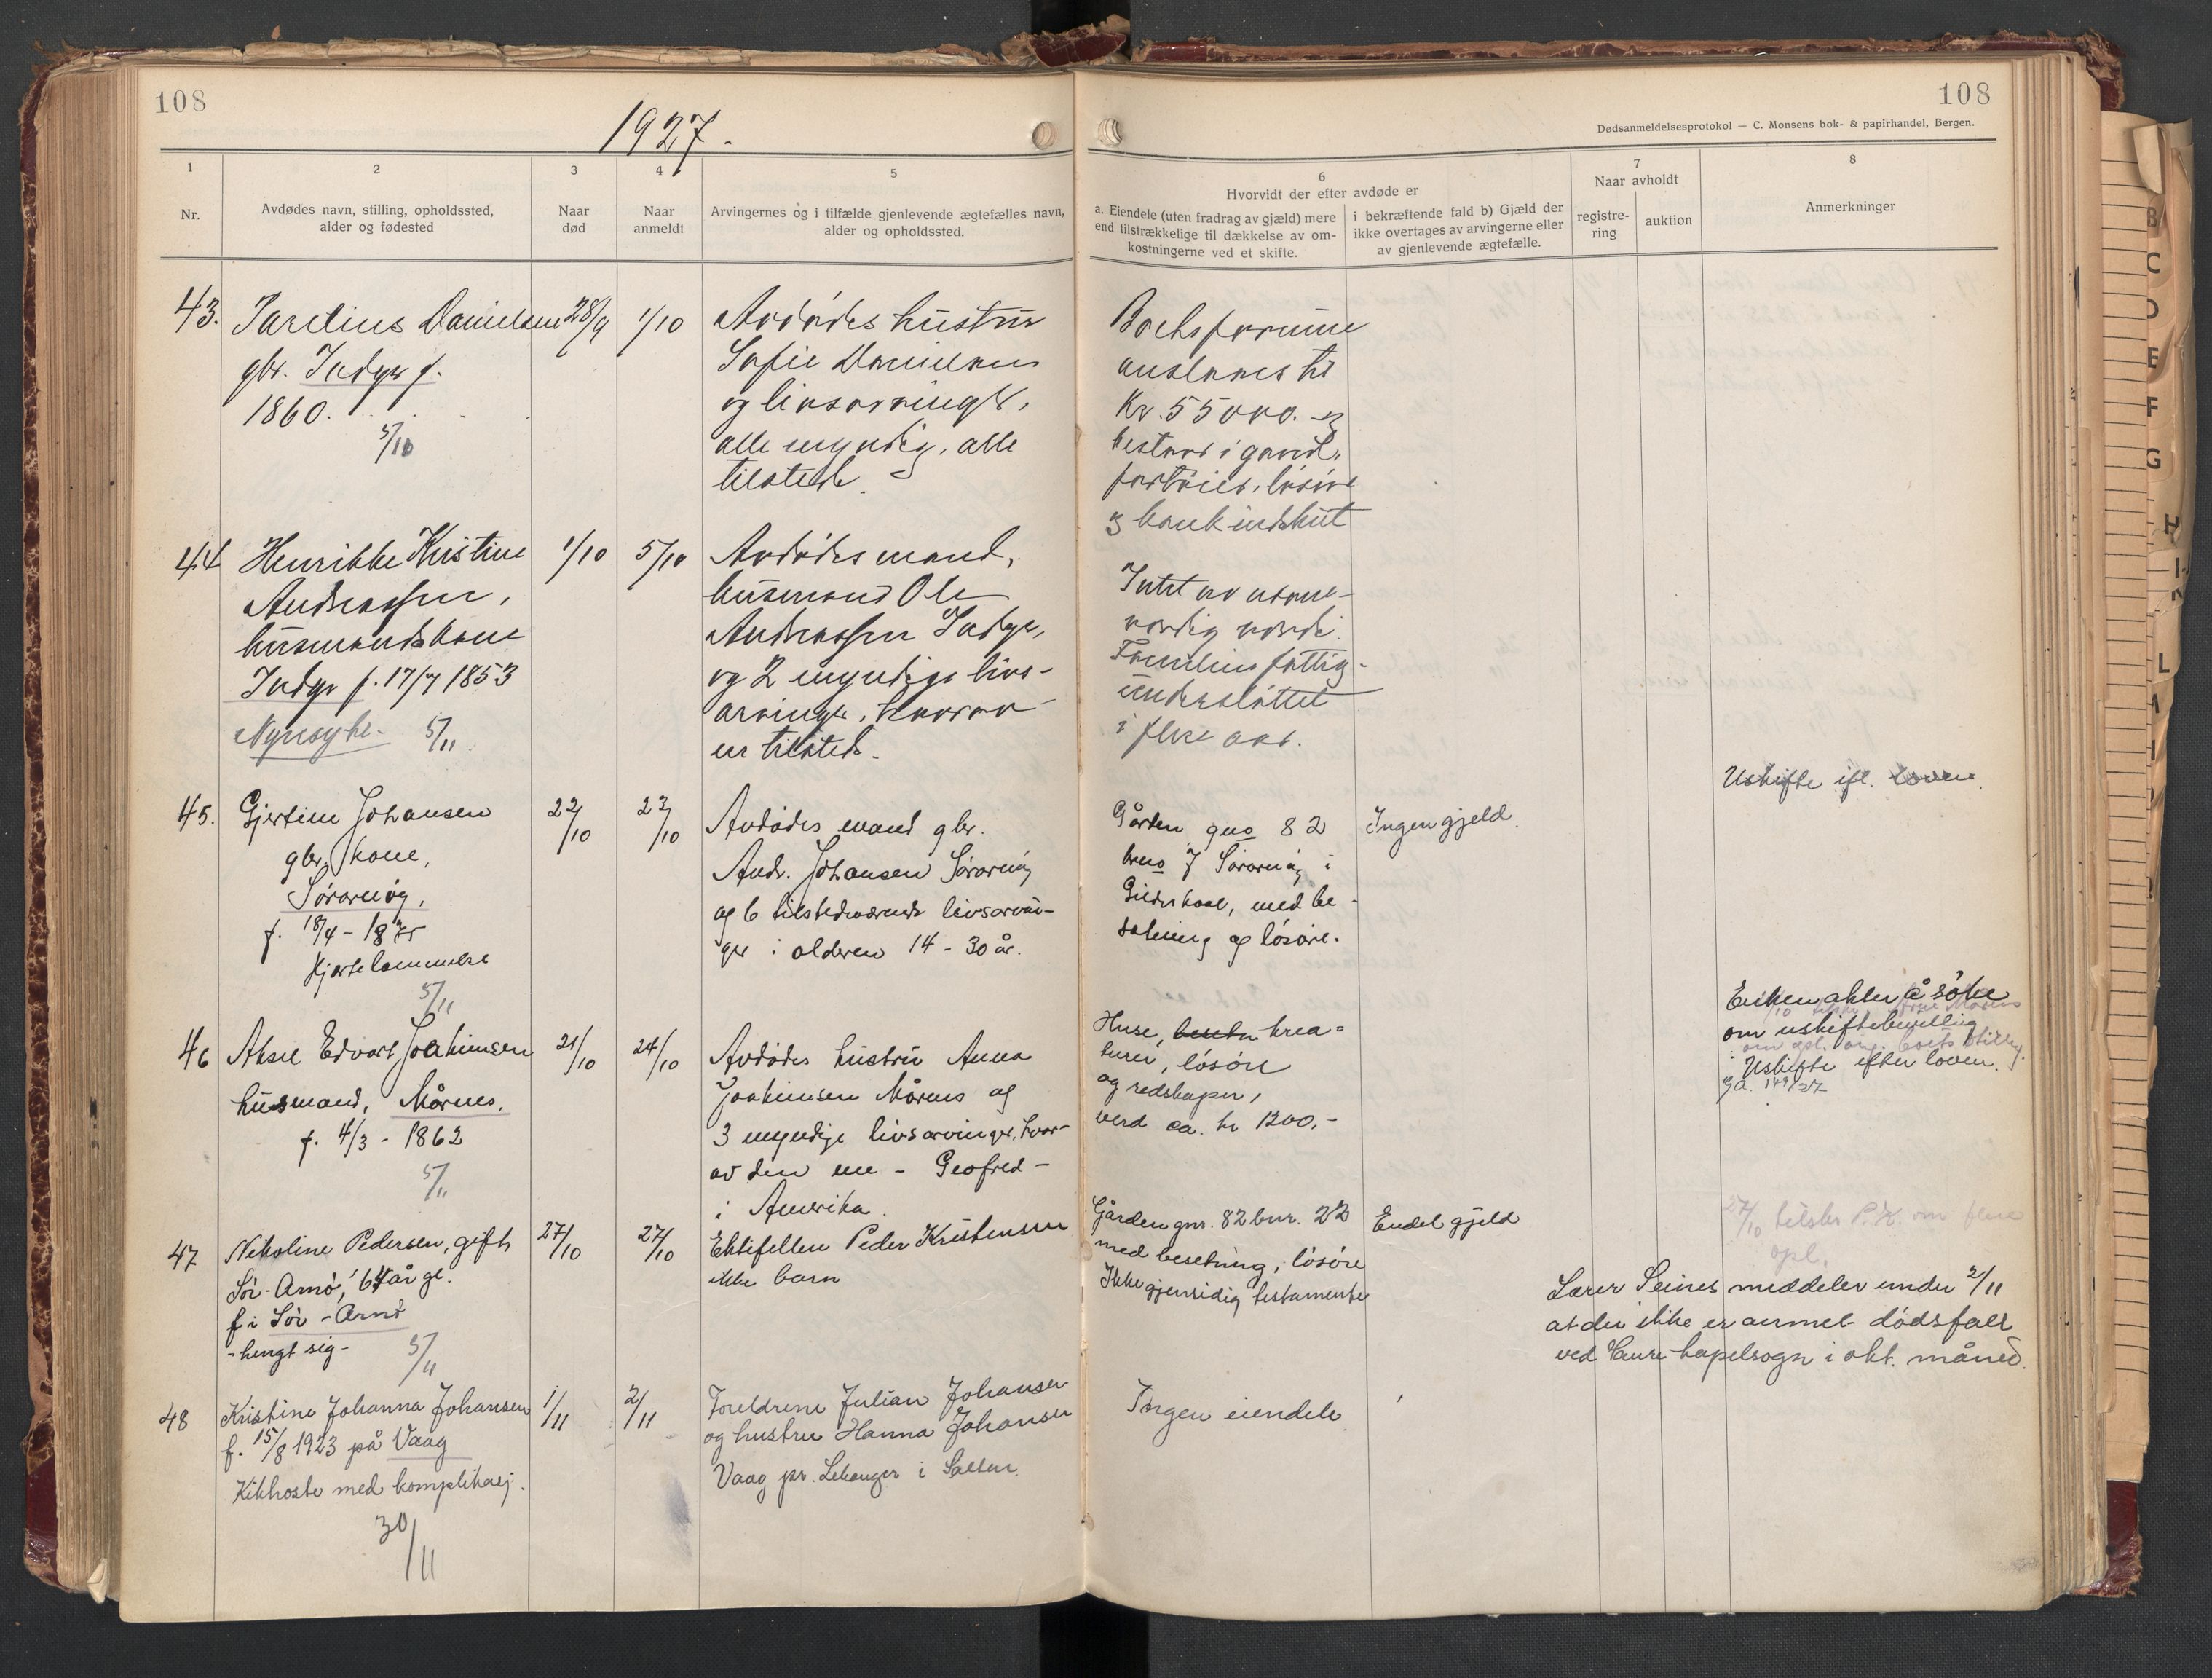 108
1927.
1
2
3
4
5
Nr.
Avdødes navn, stilling, opholdssted,
alder og fødested
Naar
død
Naar
anmeldt
Arvingernes og i tilfælde gjenlevende ægtefælles navn,
alder og opholdssted.
43.
Danielsen
gbr. Indyr f.
1860.
5/10
28/9
1/10
Avdødes hustru
Sofie Danielsen
og livsarvinger,
alle myndig, alle
tilstede.
44
Henrikke Kristine
Andreassen,
husmandskone
Indyr f. 17/7 1853
Nyresyke. 5/11
1/10
5/10
Avdødes mand,
husmand Ole
Andreassen Indyr,
og 2 myndige livs-
arvinger, hvorav
en tilstede.
45.
Gjertine Johansen
gbr. kone,
Sørarnøy,
f. 18/4 - 1875
Hjertelammelse
5/11
22/10
23/10
Avdødes mand gbr.
Andr. Johansen Sørarnøy
og 6 tilstedeværende livsarvin-
ger i alderen 14 - 30 år.
46
Aksel Edvart Joakimsen
husmand, Mårnes.
f. 4/3 - 1862
5/11
21/10
24/10
Avdødes hustru Anna
Joakimsen Mårnes og
3 myndige livsarvinger, hvor-
av den ene - Geofred -
i Amerika.
47
Nikoline Pedersen, gift
Sør-Arnø, 64 år gl.
f i Sør-Arnø
- hengt sig -
5/11
27/10
27/10
Ektefellen Peder Kristensen
ikke barn
48
Kristine Johanna Johansen
f. 15/8 1923 på Vaag
Kikhoste med komplikasj.
30/11
1/11
2/11
Foreldrene Julian Johansen
og hustru Hanna Johansen
Vaag pr. Lekanger i Salten.
108
Dødsanmeldelsesprotokol — C. Monsens bok- & papirhandel, Bergen.
6
Hvorvidt der efter avdøde er
a. Eiendele (uten fradrag av gjæld) mere
end tilstrækkelige til dækkelse av om-
kostningerne ved et skifte.
i bekræftende fald b) Gjæld der
ikke overtages av arvingerne eller
av gjenlevende ægtefælle.
7
Naar avholdt
registre-
ring
auktion
8
Anmerkninger
Boets formue
anslaaes til
Kr. 55000. og
bestaar i gaard,
fartøier, løsøre
og bankindskut
Intet av
verdi.
Familien fattig-
understøttet
i flere aar.
Gården gno 82
brno 7 Sørarnøy i
Gildeskaal, med be-
setning og løsøre.
Ingen gjeld.
Uskifte ifl. loven.
Huse, besetn krea=
turer, løsøre
og redskaper,
verd ca. kr 1200,-
Enken akter å søke
om uskiftebevilling
om opl. ang. boets stilling.
Uskifte efter loven.
Gården gnr. 82 bnr. 22
med besetning, løsøre
Ikke gjensidig testamente
Endel gjeld
27/10 tilskr. P.K. om flere
opl.
Lærer Seines meddeler under 2/11
at der ikke er anmel dødsfall
ved kapelsogn i okt. måned.
Ingen eiendele